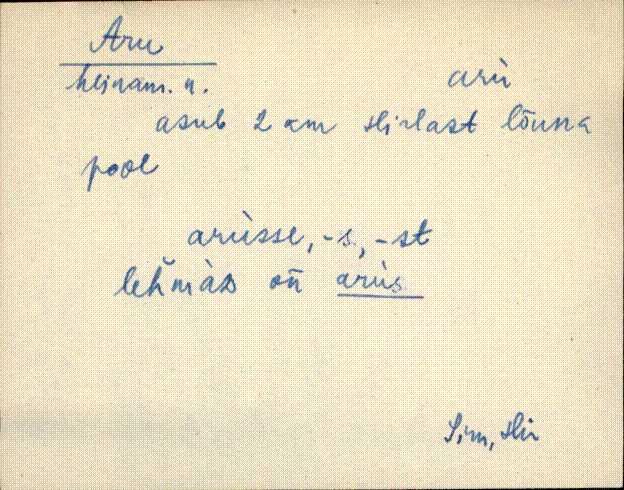 Aru
heinam. n. arù
asub 2 km Hirlast lõuna
pool
arùsse, -s, -st
lehmàD on̄ arùs
Sim, Hir